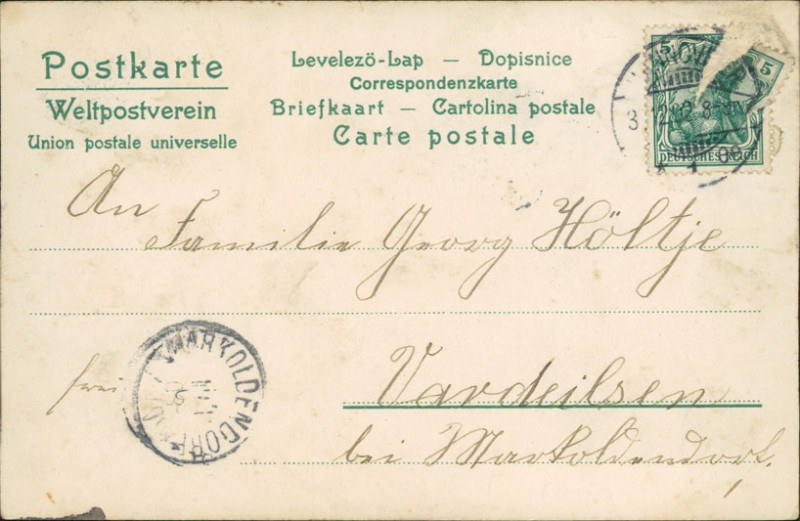 Postkarte
Weltpostverein
Union postale universelle
Levelezö-Lap — Dopisnice
Correspondenzkarte
Briefkaart — Cartolina postale
Carte postale
5
5
DEUTSCHES REICH
An
Familie Georg Höltje
Vardeilsen
bei Markoldendorf.
frei
MARKOLDENDORF